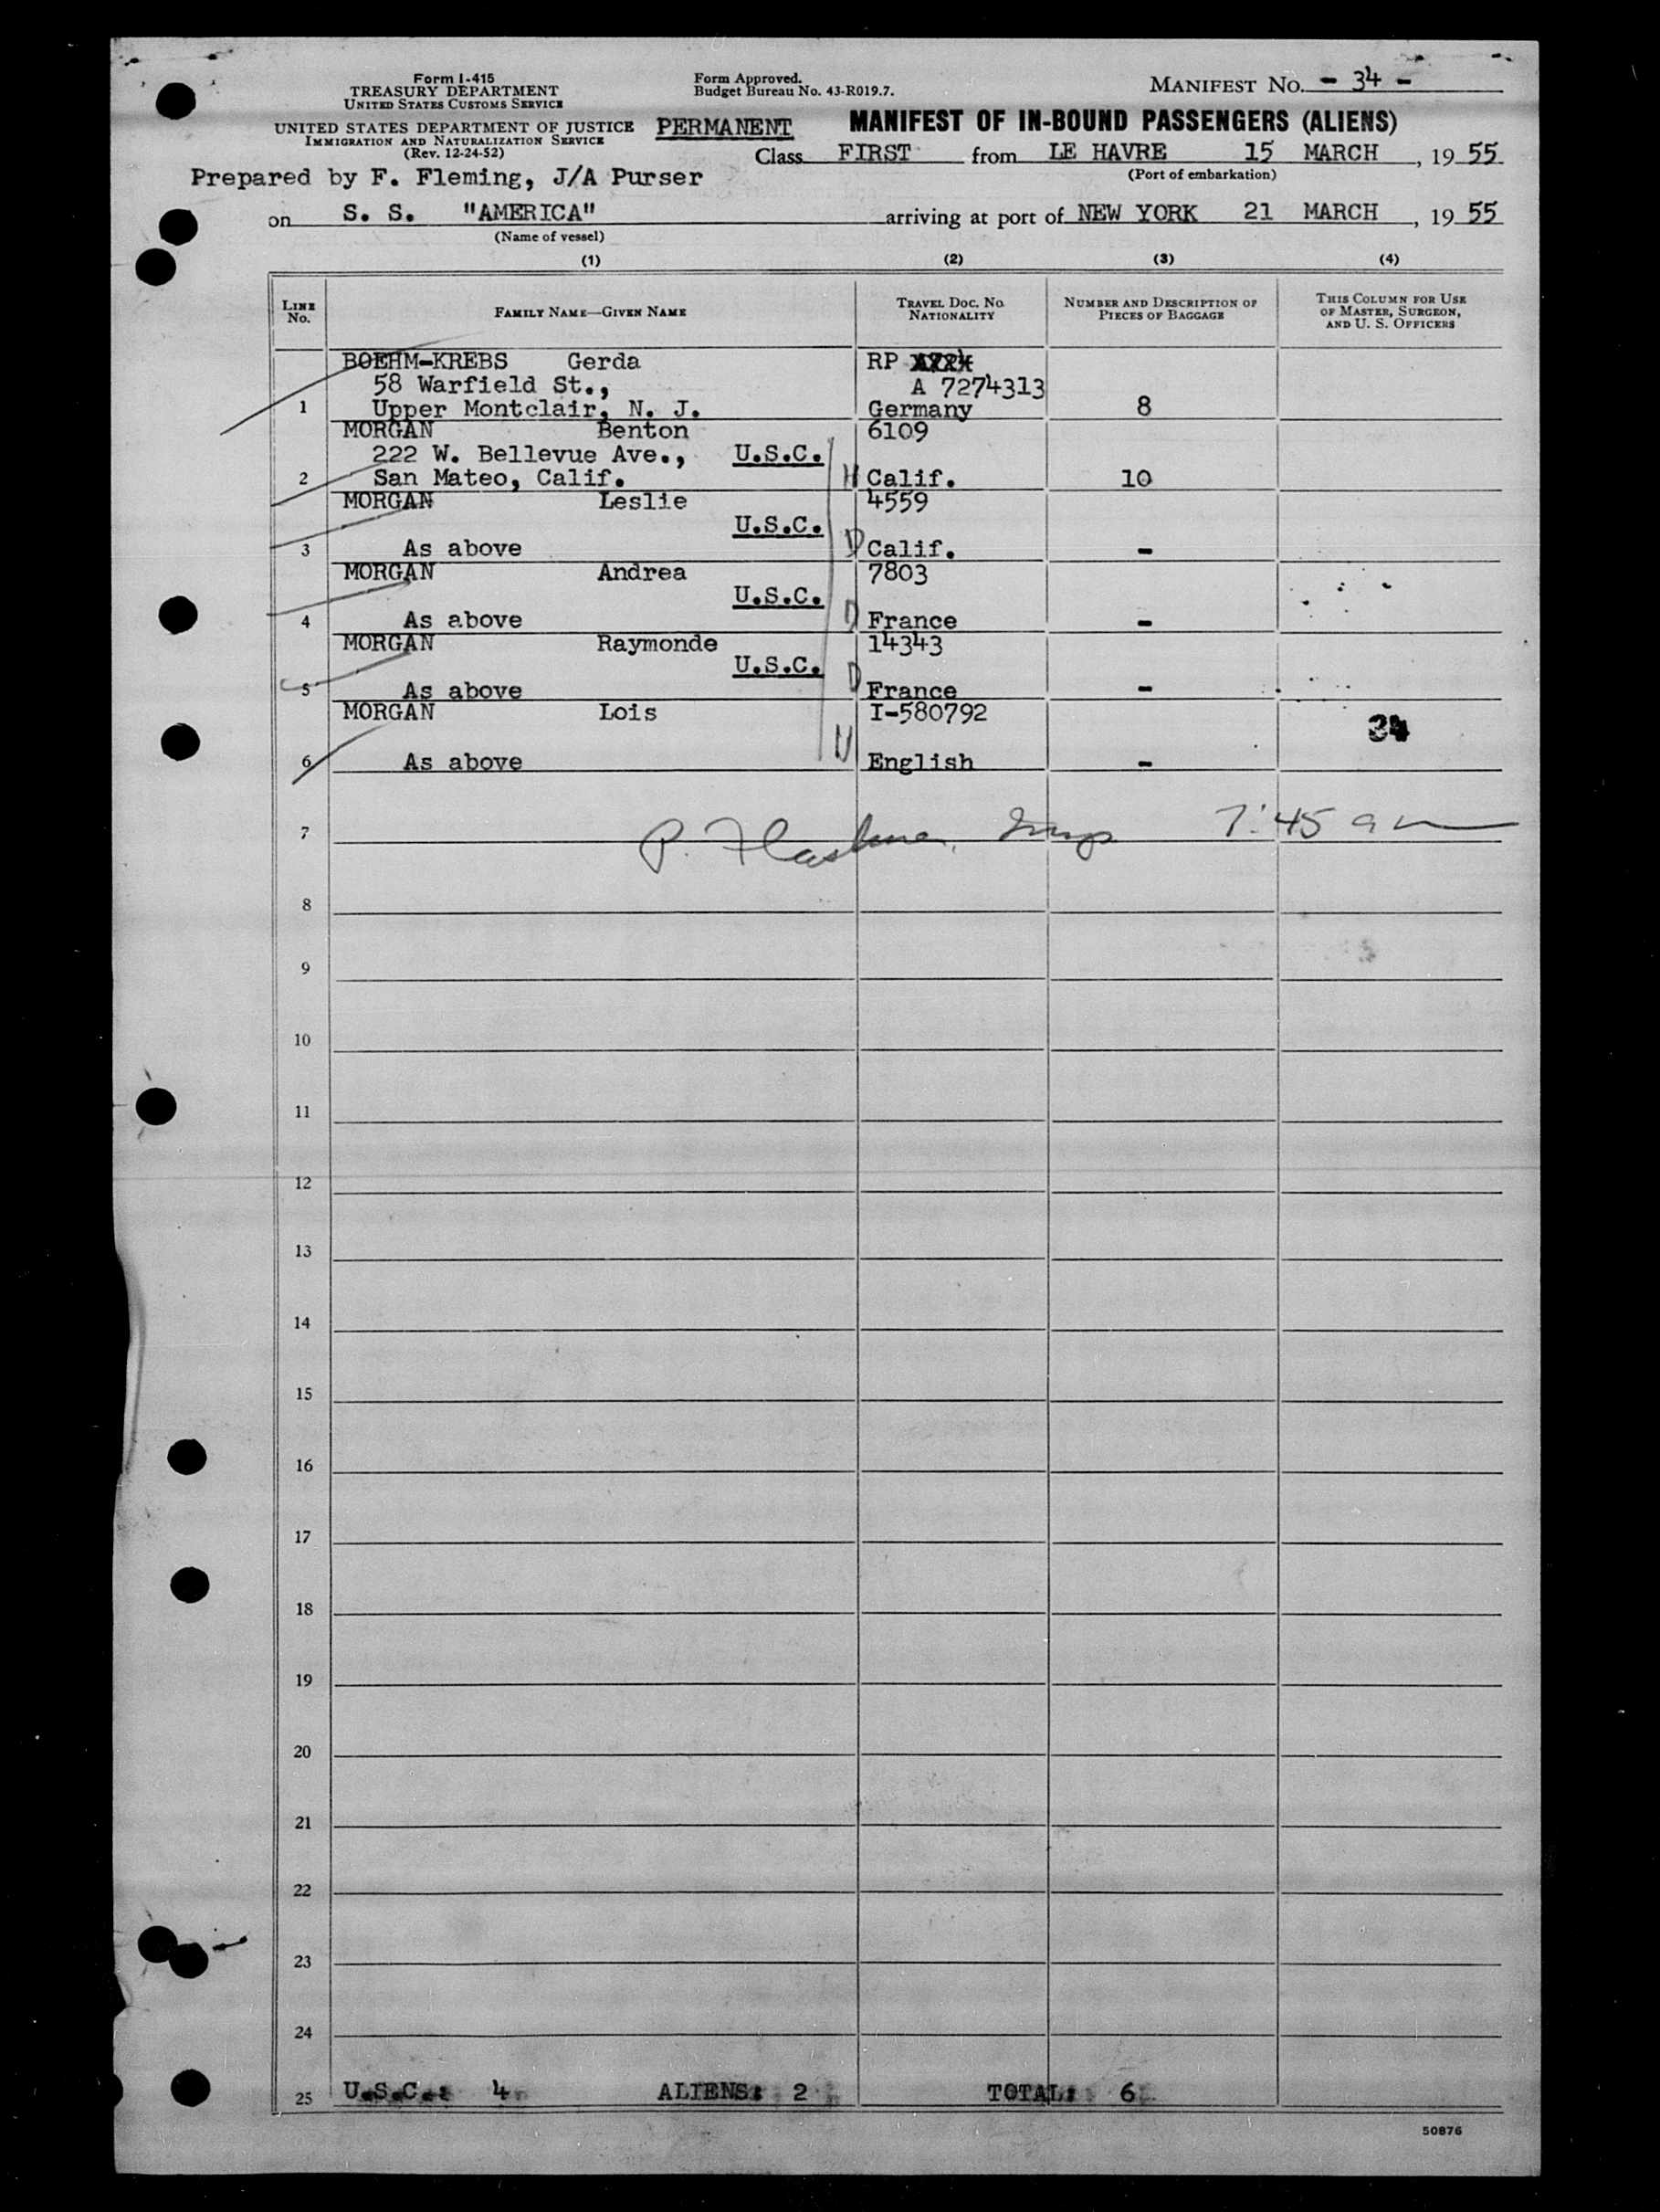 Form I-415
TREASURY DEPARTMENT
UNITED STATES CUSTOMS SERVICE
UNITED STATES DEPARTMENT OF JUSTICE
IMMIGRATION AND NATURALIZATION SERVICE
(Rev. 12-24-52)
Form Approved.
Budget Bureau No. 43-R019.7.
MANIFEST NO. - 34 -
PERMANENT MANIFEST OF IN-BOUND PASSENGERS (ALIENS)
Class FIRST from LE HAVRE 15 MARCH, 1955
(Port of embarkation)
Prepared by F. Fleming, J/A Purser
on S. S. "AMERICA" arriving at port of NEW YORK 21 MARCH, 1955
(Name of vessel)
(1) (2) (3) (4)
LINE No. FAMILY NAME—GIVEN NAME TRAVEL DOC. NO. NATIONALITY NUMBER AND DESCRIPTION OF PIECES OF BAGGAGE THIS COLUMN FOR USE OF MASTER, SURGEON, AND U. S. OFFICERS
BOEHM-KREBS Gerda RP
58 Warfield St., A 7274313
1 Upper Montclair, N. J. Germany 8
MORGAN Benton 6109
222 W. Bellevue Ave., U.S.C.
2 San Mateo, Calif. Calif. 10
MORGAN Leslie 4559
U.S.C.
3 As above Calif. -
MORGAN Andrea 7803
U.S.C.
4 As above France -
MORGAN Raymonde 14343
U.S.C.
5 As above France -
MORGAN Lois I-580792 34
6 As above English -
7 P. 7:45 am
8
9
10
11
12
13
14
15
16
17
18
19
20
21
22
23
24
25 U.S.C.: 4 ALIENS: 2 TOTAL: 6
50876